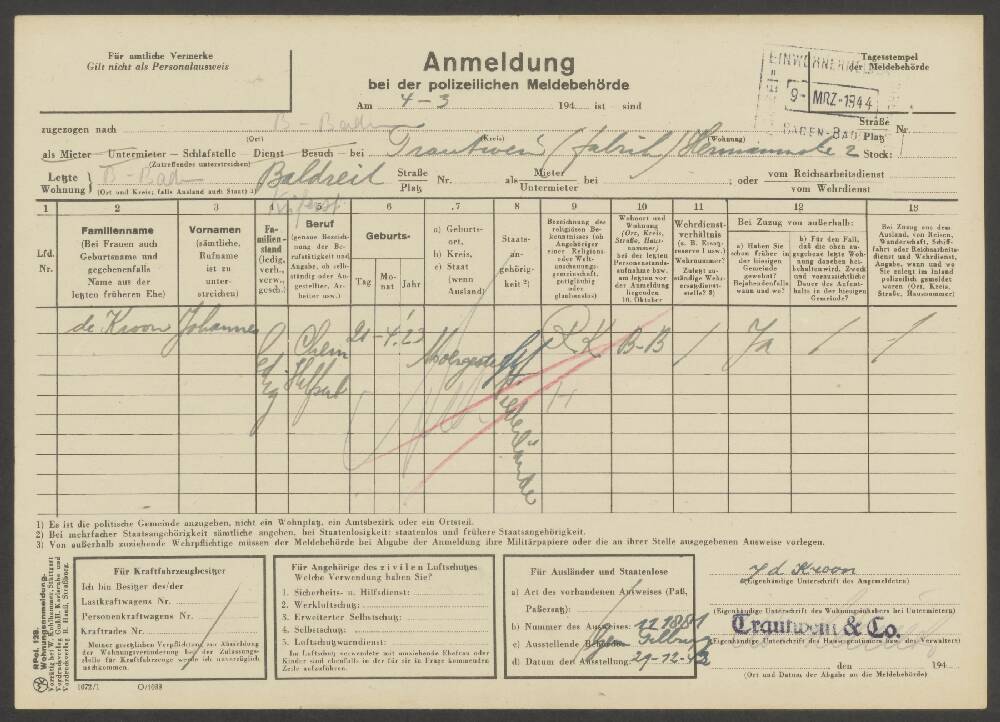 Für amtliche Vermerke
Gilt nicht als Personalausweis
Anmeldung
bei der polizeilichen Meldebehörde
Am 4-3 194 ist - sind
Tagesstempel
der Meldebehörde
9- MRZ-1944
zugezogen nach B-Baden
(Ort) (Kreis) (Wohnung)
Straße
Platz Nr.
als Mieter - Untermieter - Schlafstelle - Dienst - Besuch - bei Trautwein (Fabrik) Hermannstr 2 Stock:
(Zutreffendes unterstreichen)
Letzte
Wohnung B-Bad Baldreit Straße
Platz Nr. als Mieter
Untermieter bei ; oder vom Reichsarbeitsdienst
vom Wehrdienst
(Ort und Kreis; falls Ausland auch Staat)
1 2 3 4 5 6 7 8 9 10 11 12 13
Lfd.
Nr.
Familienname
(Bei Frauen auch
Geburtsname und
gegebenenfalls
Name aus der
letzten früheren Ehe)
Vornamen
(sämtliche,
Rufname
ist zu
unter-
streichen)
Fa-
milien-
stand
(ledig,
verh.,
verw.,
gesch.)
Beruf
(genaue Bezeich-
nung der Be-
rufstätigkeit und
Angabe, ob selb-
ständig oder An-
gestellter, Ar-
beiter usw.)
Geburts-
Tag Mo-
nat Jahr
a) Geburts-
ort,
b) Kreis,
c) Staat
(wenn
Ausland)
Staats-
an-
gehörig-
keit ²)
Bezeichnung des
religiösen Be-
kenntnisses (ob
Angehöriger
einer Religions-
oder Welt-
anschauungs-
gemeinschaft,
gottgläubig
oder
glaubenslos)
Wohnort und
Wohnung
(Ort, Kreis,
Straße, Haus-
nummer)
bei der letzten
Personenstands-
aufnahme bzw.
am letzten vor
der Anmeldung
liegenden
10. Oktober
Wehrdienst-
verhältnis
(z. B. Ersatz-
reserve I usw.)
Wehrnummer?
Zuletzt zu-
ständige Wehr-
ersatzdienst-
stelle? 3)
Bei Zuzug von außerhalb:
a) Haben Sie
schon früher in
der hiesigen
Gemeinde
gewohnt?
Bejahendenfalls
wann und wo?
b) Für den Fall,
daß die oben an-
gegebene letzte Woh-
nung daneben bei-
behalten wird, Zweck
und voraussichtliche
Dauer des Aufent-
halts in der hiesigen
Gemeinde?
Bei Zuzug aus dem
Ausland, von Reisen,
Wanderschaft, Schiff-
fahrt oder Reichsarbeits-
dienst und Wehrdienst,
Angabe, wann und wo
Sie zuletzt im Inland
polizeilich gemeldet
waren (Ort, Kreis,
Straße, Hausnummer)
de Kroon Johannes Chem 21 - 4. 23 R.K B-B / Ja / /
Niederlande
1) Es ist die politische Gemeinde anzugeben, nicht ein Wohnplatz, ein Amtsbezirk oder ein Ortsteil.
2) Bei mehrfacher Staatsangehörigkeit sämtliche angeben, bei Staatenlosigkeit: staatenlos und frühere Staatsangehörigkeit.
3) Von außerhalb zuziehende Wehrpflichtige müssen der Meldebehörde bei Abgabe der Anmeldung ihre Militärpapiere oder die an ihrer Stelle ausgegebenen Ausweise vorlegen.
RPol. 128.
Wohnungsanmeldung.
Für Kraftfahrzeugbesitzer
Ich bin Besitzer des/der
Lastkraftwagens Nr.
Personenkraftwagens Nr.
Kraftrades Nr.
Meiner gesetzlichen Verpflichtung zur Abmeldung
der Wohnungsveränderung bei der Zulassungs-
stelle für Kraftfahrzeuge werde ich unverzüglich
nachkommen.
1672/1 O/1038
Für Angehörige des zivilen Luftschutzes
Welche Verwendung haben Sie?
1. Sicherheits- u. Hilfsdienst:
2. Werkluftschutz:
3. Erweiterter Selbstschutz:
4. Selbstschutz:
5. Luftschutzwarndienst:
Im Luftschutz verwendete mit anziehende Ehefrau oder
Kinder sind ebenfalls in der für sie in Frage kommenden
Zeile aufzuführen.
Für Ausländer und Staatenlose
a) Art des vorhandenen Ausweises (Paß,
Paßersatz):
b) Nummer des Ausweises: 127881
c) Ausstellende Behörde: Tilburg
d) Datum der Ausstellung: 29-12-42
J d Kroon
(Eigenhändige Unterschrift des Angemeldeten)
(Eigenhändige Unterschrift des Wohnungsinhabers bei Untermietern)
Trautwein & Co.
(Eigenhändige Unterschrift des Hauseigentümers bzw. des Verwalters)
, den 194
(Ort und Datum der Abgabe an die Meldebehörde)